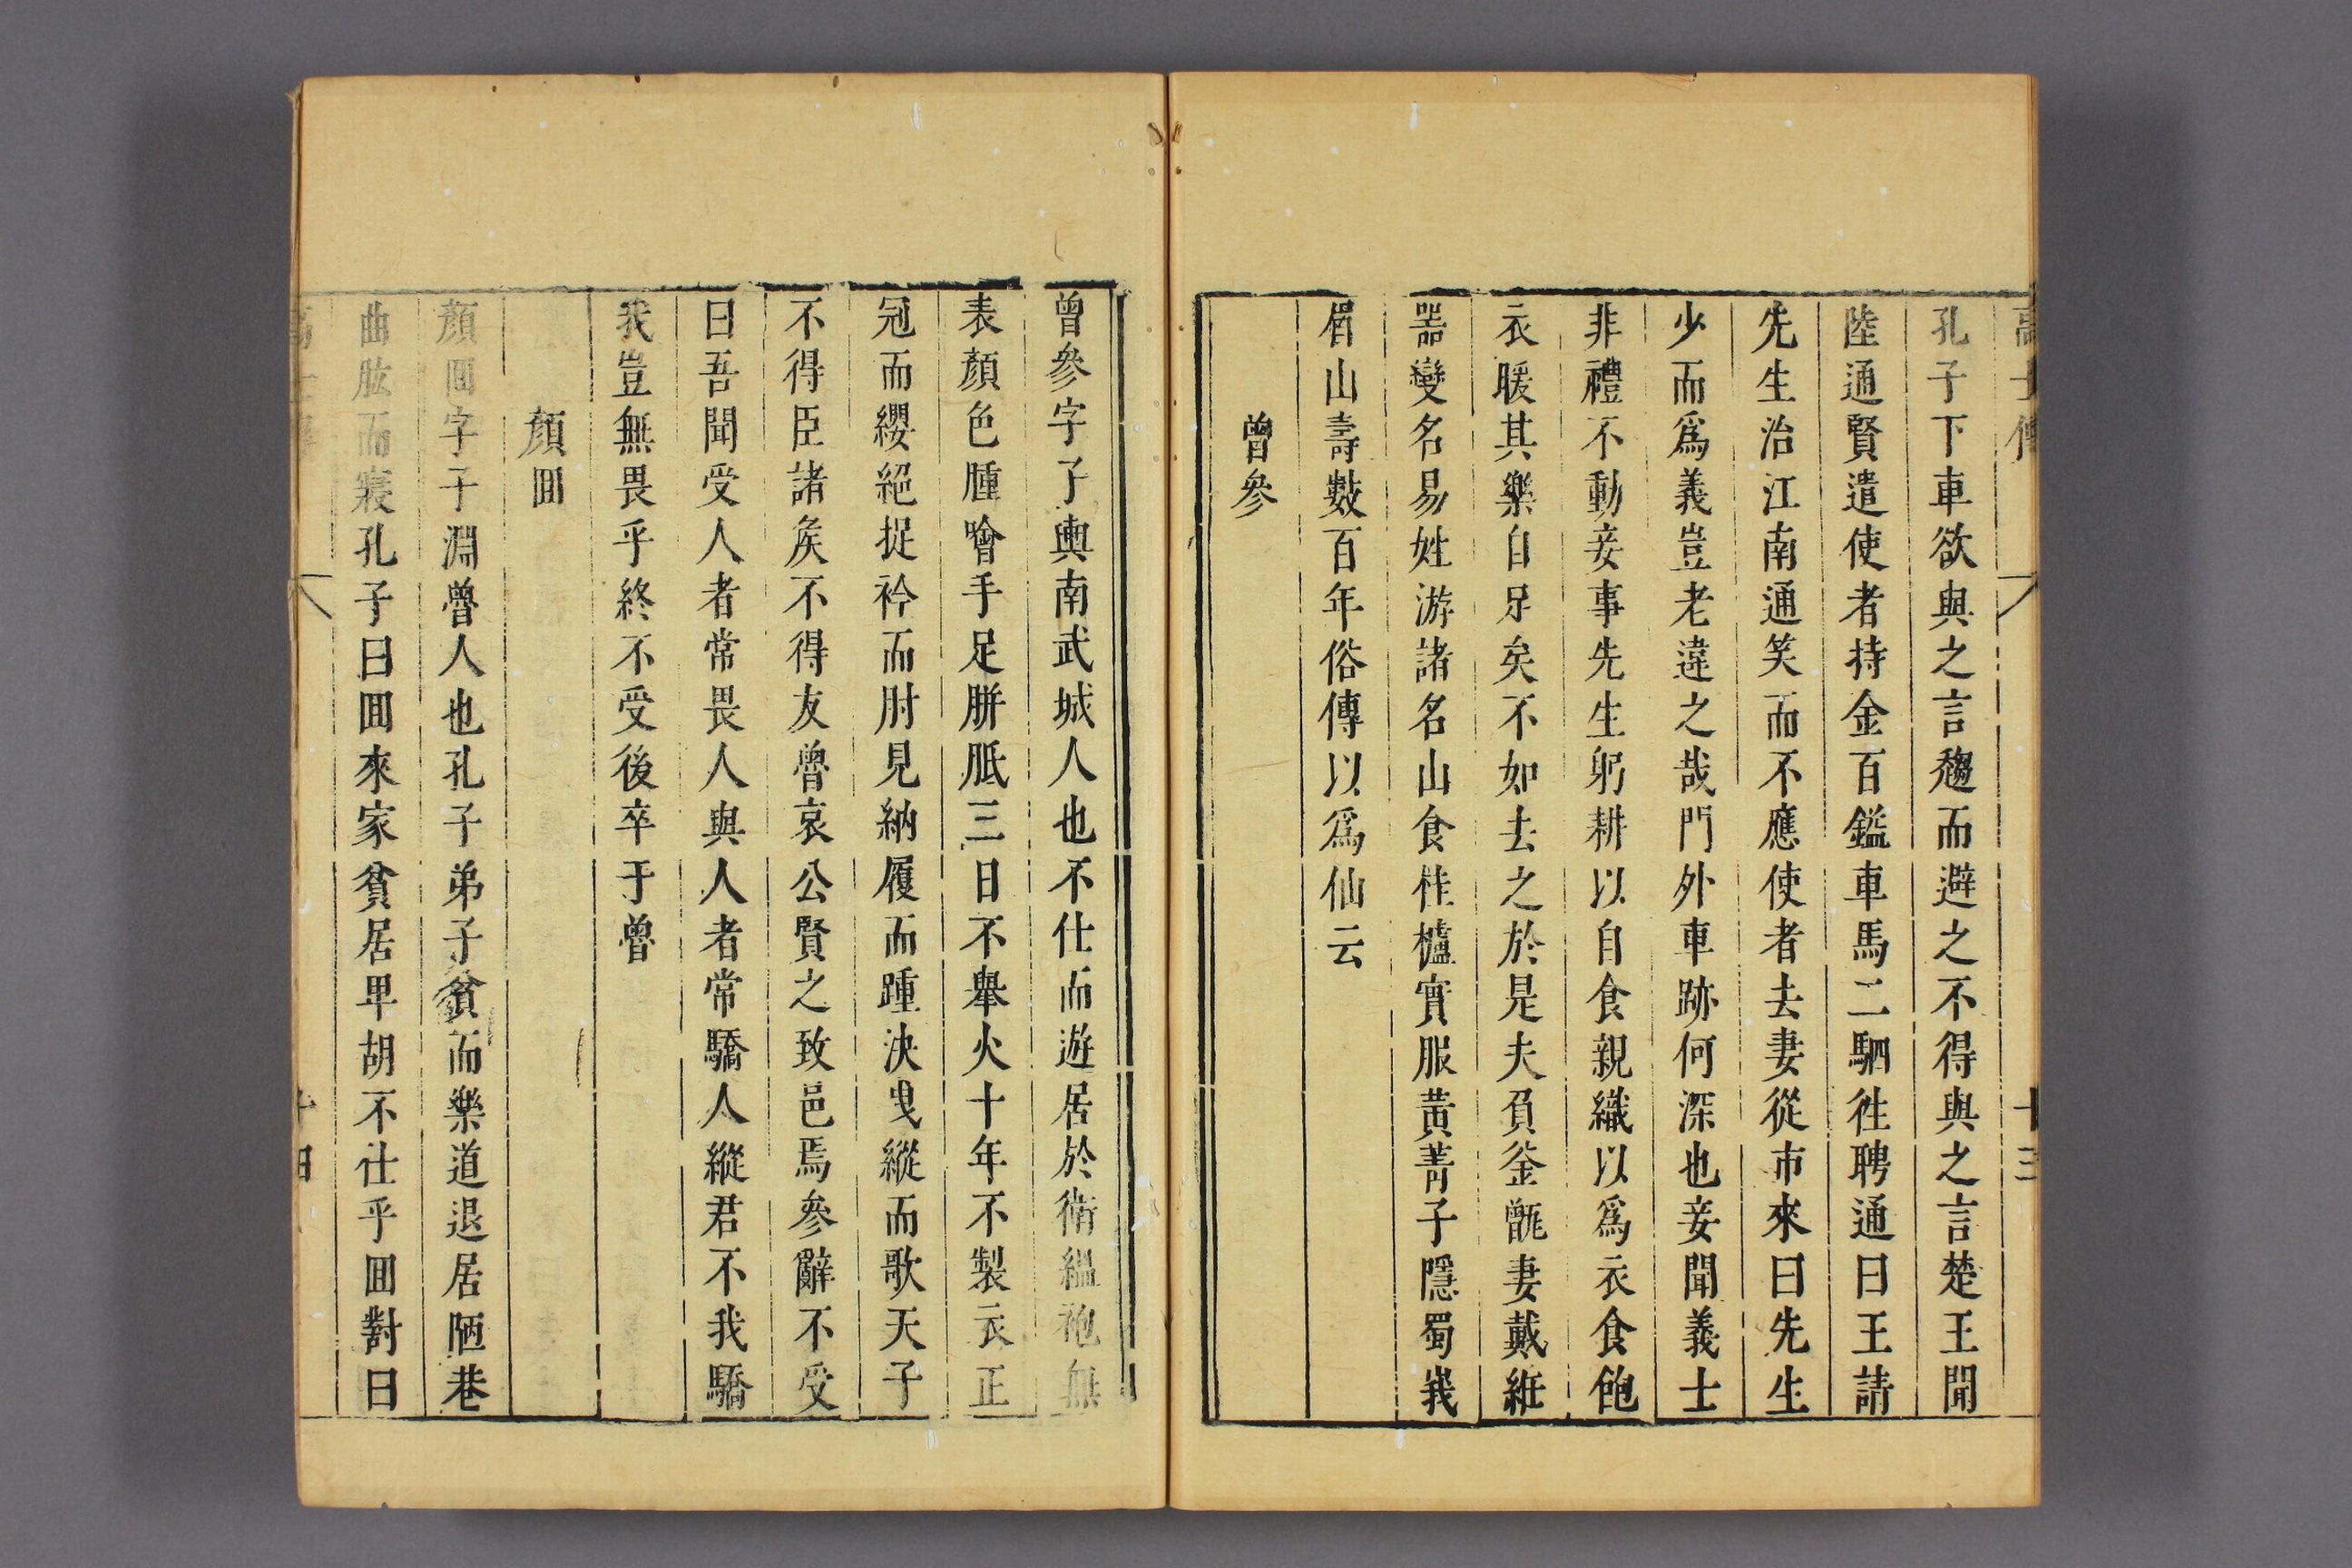 高士傳 十三
孔子下車欲與之言趨而避之不得與之言楚王聞
陸通賢遣使者持金百鎰車馬二駟徃聘通曰王請
先生治江南通笑而不應使者去妻從市來曰先生
少而爲義豈老違之哉門外車跡何深也妾聞義士
非禮不動妾事先生躬耕以自食親織以爲衣食飽
衣暖其樂自足矣不如去之於是夫負釜甑妻戴紝
器變名易姓游諸名山食桂櫨實服黃菁子隱蜀峩
眉山壽數百年俗傳以爲仙云
曾參
曾參字子輿南武城人也不仕而遊居於衛縕袍無
表顏色腫噲手足胼胝三日不舉火十年不製衣正
冠而纓絕捉衿而肘見納履而踵決曳縰而歌天子
不得臣諸矦不得友魯哀公賢之致邑焉參辭不受
曰吾聞受人者常畏人與人者常驕人縱君不我驕
我豈無畏乎終不受後卒于魯
顏囬
顏囬字子淵魯人也孔子弟子貧而樂道退居陋巷
曲肱而寢孔子曰囬來家貧居卑胡不仕乎囬對曰
十四